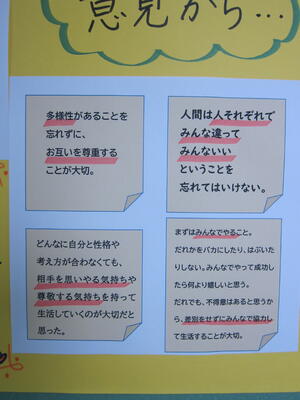 意見から…
多様性があることを
忘れずに、
お互いを尊重する
ことが大切。
人間は人それぞれで
みんな違って
みんないい
ということを
忘れてはいけない。
どんなに自分と性格や
考え方が合わなくても、
相手を思いやる気持ちや
尊敬する気持ちを持って
生活していくのが大切だと
思った。
まずはみんなでやること。
だれかをバカにしたり、はぶいた
りしない。みんなでやって成功し
たら何より嬉しいと思う。
だれでも、不得意はあると思うか
ら、差別をせずにみんなで協力し
て生活することが大切。